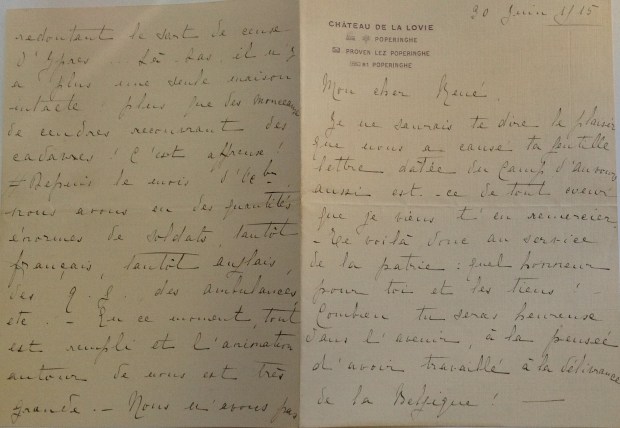 30 Juin 1915
CHÂTEAU DE LA LOVIE
POPERINGHE
PROVEN LEZ POPERINGHE
91 POPERINGHE
Mon cher René,
Je ne saurais te dire le plaisir
que nous a causé ta gentille
lettre datée du Camp d'Auvours
aussi est-ce de tout coeur
que je viens t'en remercier.
- Te voilà donc au service
de la patrie : quel honneur
pour toi et les tiens ! -
Combien tu seras heureuse
dans l'avenir, à la pensée
d'avoir travaillé à la délivrance
de la Belgique ! —
redoutant le sort de ceux
d'Ypres. Là-bas, il n'y
a plus une seule maison
intacte ! plus que des monceaux
de cendres recouvrant des
cadavres ! C'est affreux !
= Depuis le mois d'8bre
nous avons eu des quantités
énormes de soldats, tantôt
français, tantôt anglais,
des Q. G. des ambulances
etc. - En ce moment, tout
est rempli et l'animation
autour de nous est très
grande. - Nous n'avons pas